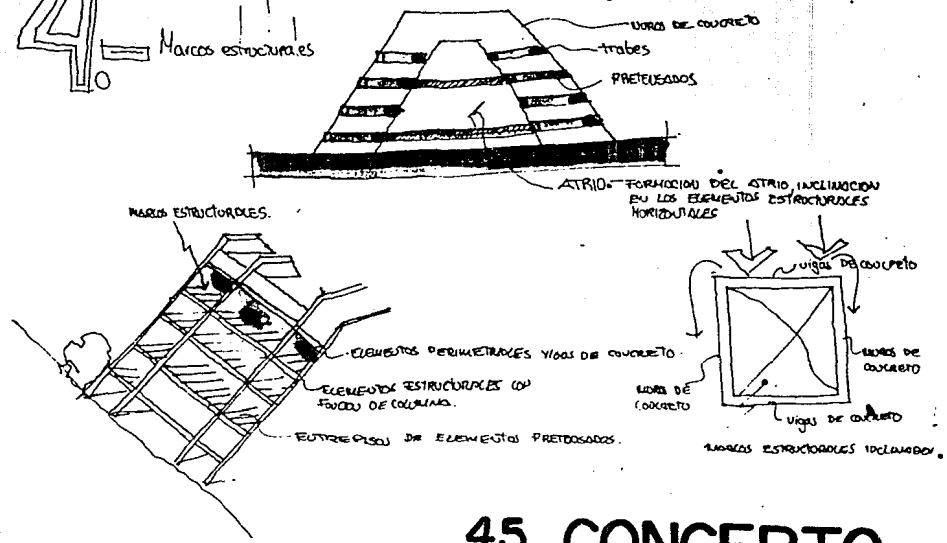 4.
Marcos estructurales
MUROS DE CONCRETO
trabes
PRETENSADOS
ATRIO.- FORMACION DEL ATRIO, INCLINACION
EN LOS ELEMENTOS ESTRUCTURALES
HORIZONTALES
MARCOS ESTRUCTURALES.
ELEMENTOS PERIMETRALES VIGAS DE CONCRETO.
ELEMENTOS ESTRUCTURALES CON
FUNCION DE COLUMNA.
ENTREPISOS DE ELEMENTOS PRETENSADOS.
vigas DE CONCRETO
MUROS DE
CONCRETO
MUROS DE
CONCRETO
vigas DE CONCRETO
MARCOS ESTRUCTURALES INCLINADOS.
4.5 CONCEPTO